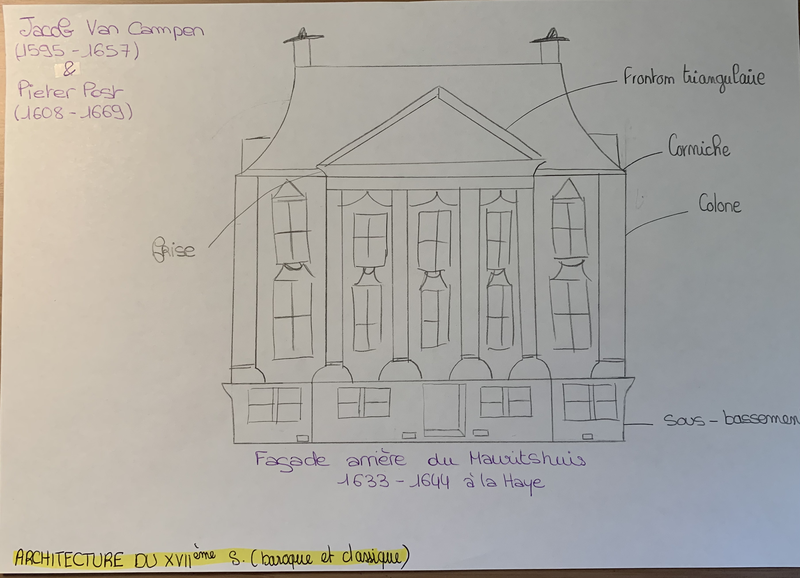 Jacob Van Campen
(1595-1657)
&
Pieter Post
(1608-1669)
Frontom triangulaire
Corniche
Colone
frise
sous-bassemen
Façade arrière du Mauritshuis
1633-1644 à la Haye
ARCHITECTURE DU XVIIème S. (baroque et classique)